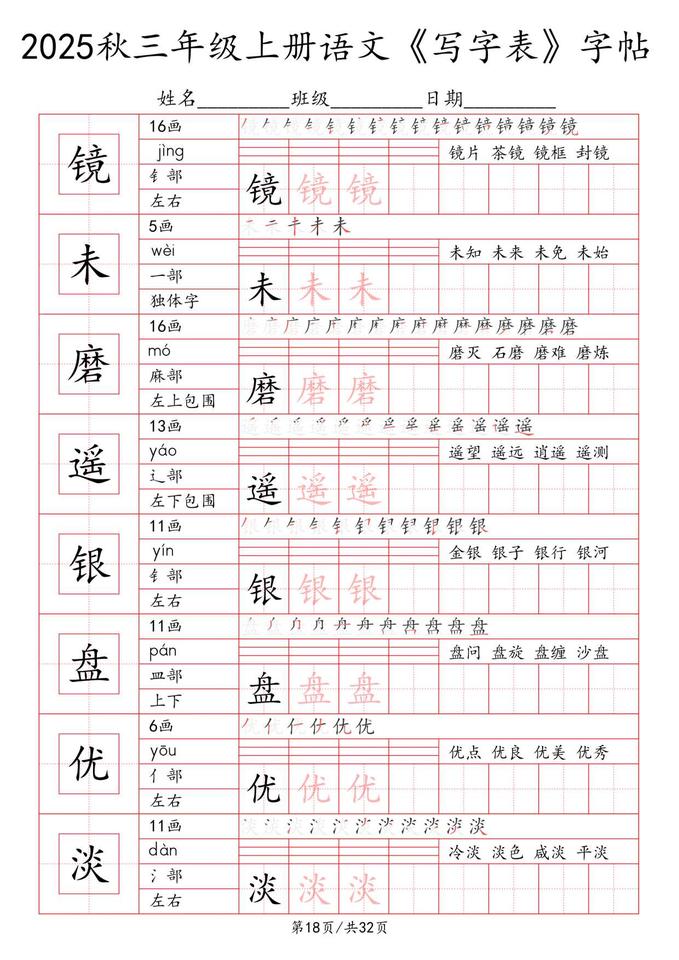 2025秋三年级上册语文《写字表》字帖
姓名________班级________日期________
镜
16画
jìng
钅部
左右
镜片 茶镜 镜框 封镜
镜 镜 镜
未
5画
wèi
一部
独体字
未知 未来 未免 未始
未 未 未
磨
16画
mó
麻部
左上包围
磨灭 石磨 磨难 磨炼
磨 磨 磨
遥
13画
yáo
辶部
左下包围
遥望 遥远 逍遥 遥测
遥 遥 遥
银
11画
yín
钅部
左右
金银 银子 银行 银河
银 银 银
盘
11画
pán
皿部
上下
盘问 盘旋 盘缠 沙盘
盘 盘 盘
优
6画
yōu
亻部
左右
优点 优良 优美 优秀
优 优 优
淡
11画
dàn
氵部
左右
冷淡 淡色 咸淡 平淡
淡 淡 淡
第18页/共32页